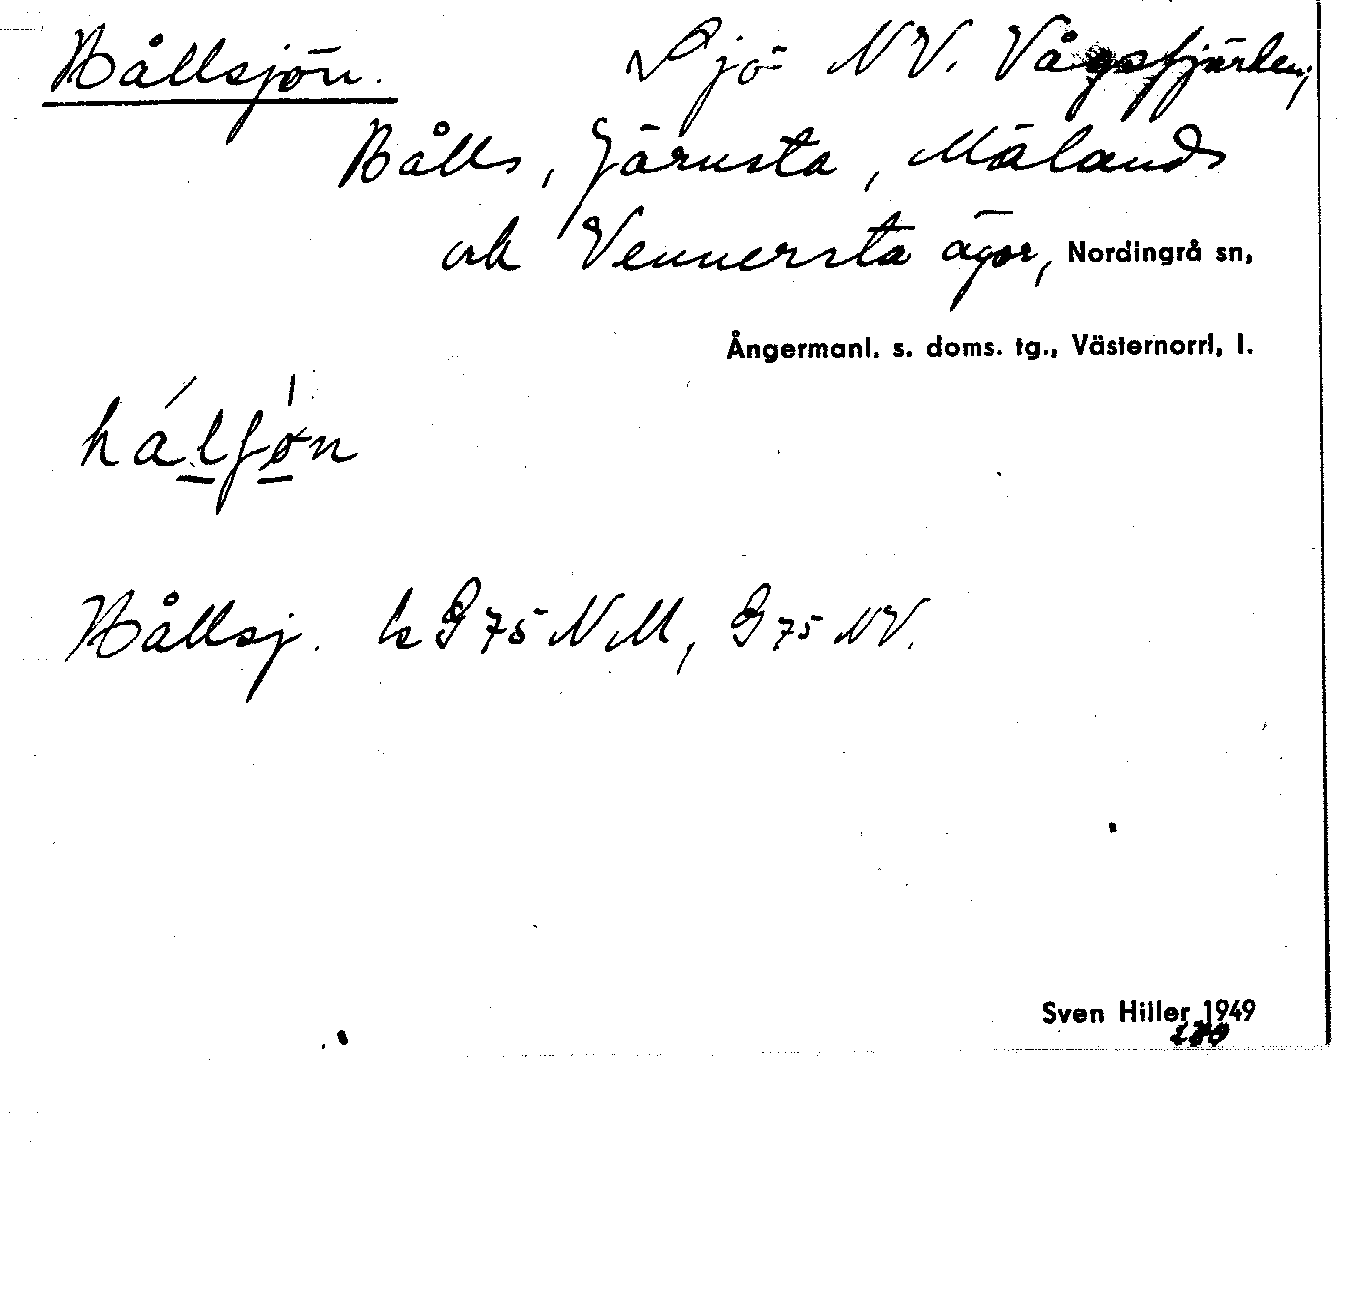 Hållsjön. Sjö NV. Vågsfjärden,
Hålls, Järnsta, Mälands
och Vennersta ägor, Nordingrå sn,
Ångermanl. s. doms. tg., Västernorrl, l.
hálʃøn
Hållsj. k G 75 NM, G 75 NV.
Sven Hiller 1949